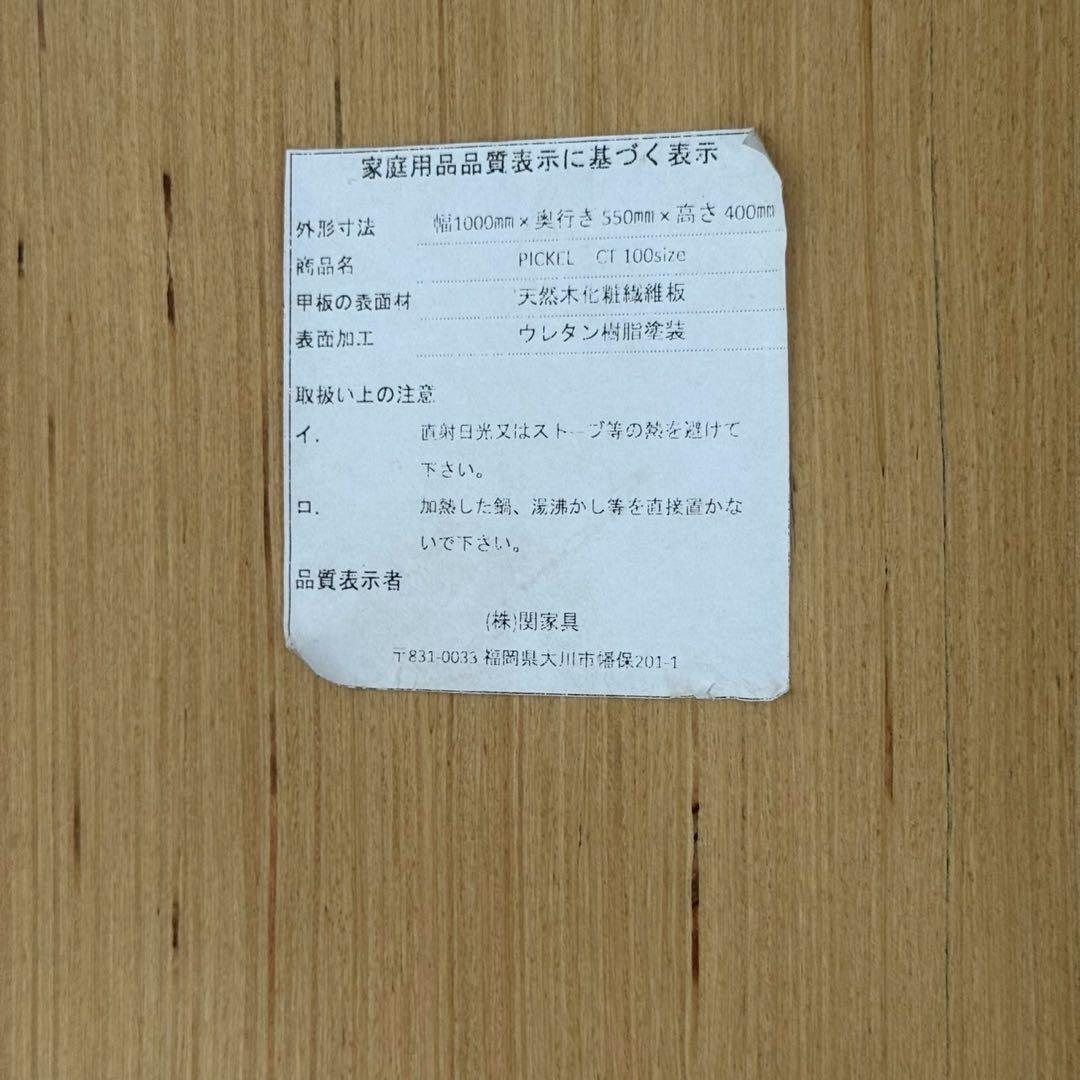 家庭用品品質表示に基づく表示
外形寸法 幅1000mm×奥行き550mm×高さ400mm
商品名 PICKEL CT 100size
甲板の表面材 天然木化粧繊維板
表面加工 ウレタン樹脂塗装
取扱い上の注意
イ. 直射日光又はストーブ等の熱を避けて
下さい。
ロ. 加熱した鍋、湯沸かし等を直接置かな
いで下さい。
品質表示者
(株)関家具
〒831-0033 福岡県大川市幡保201-1